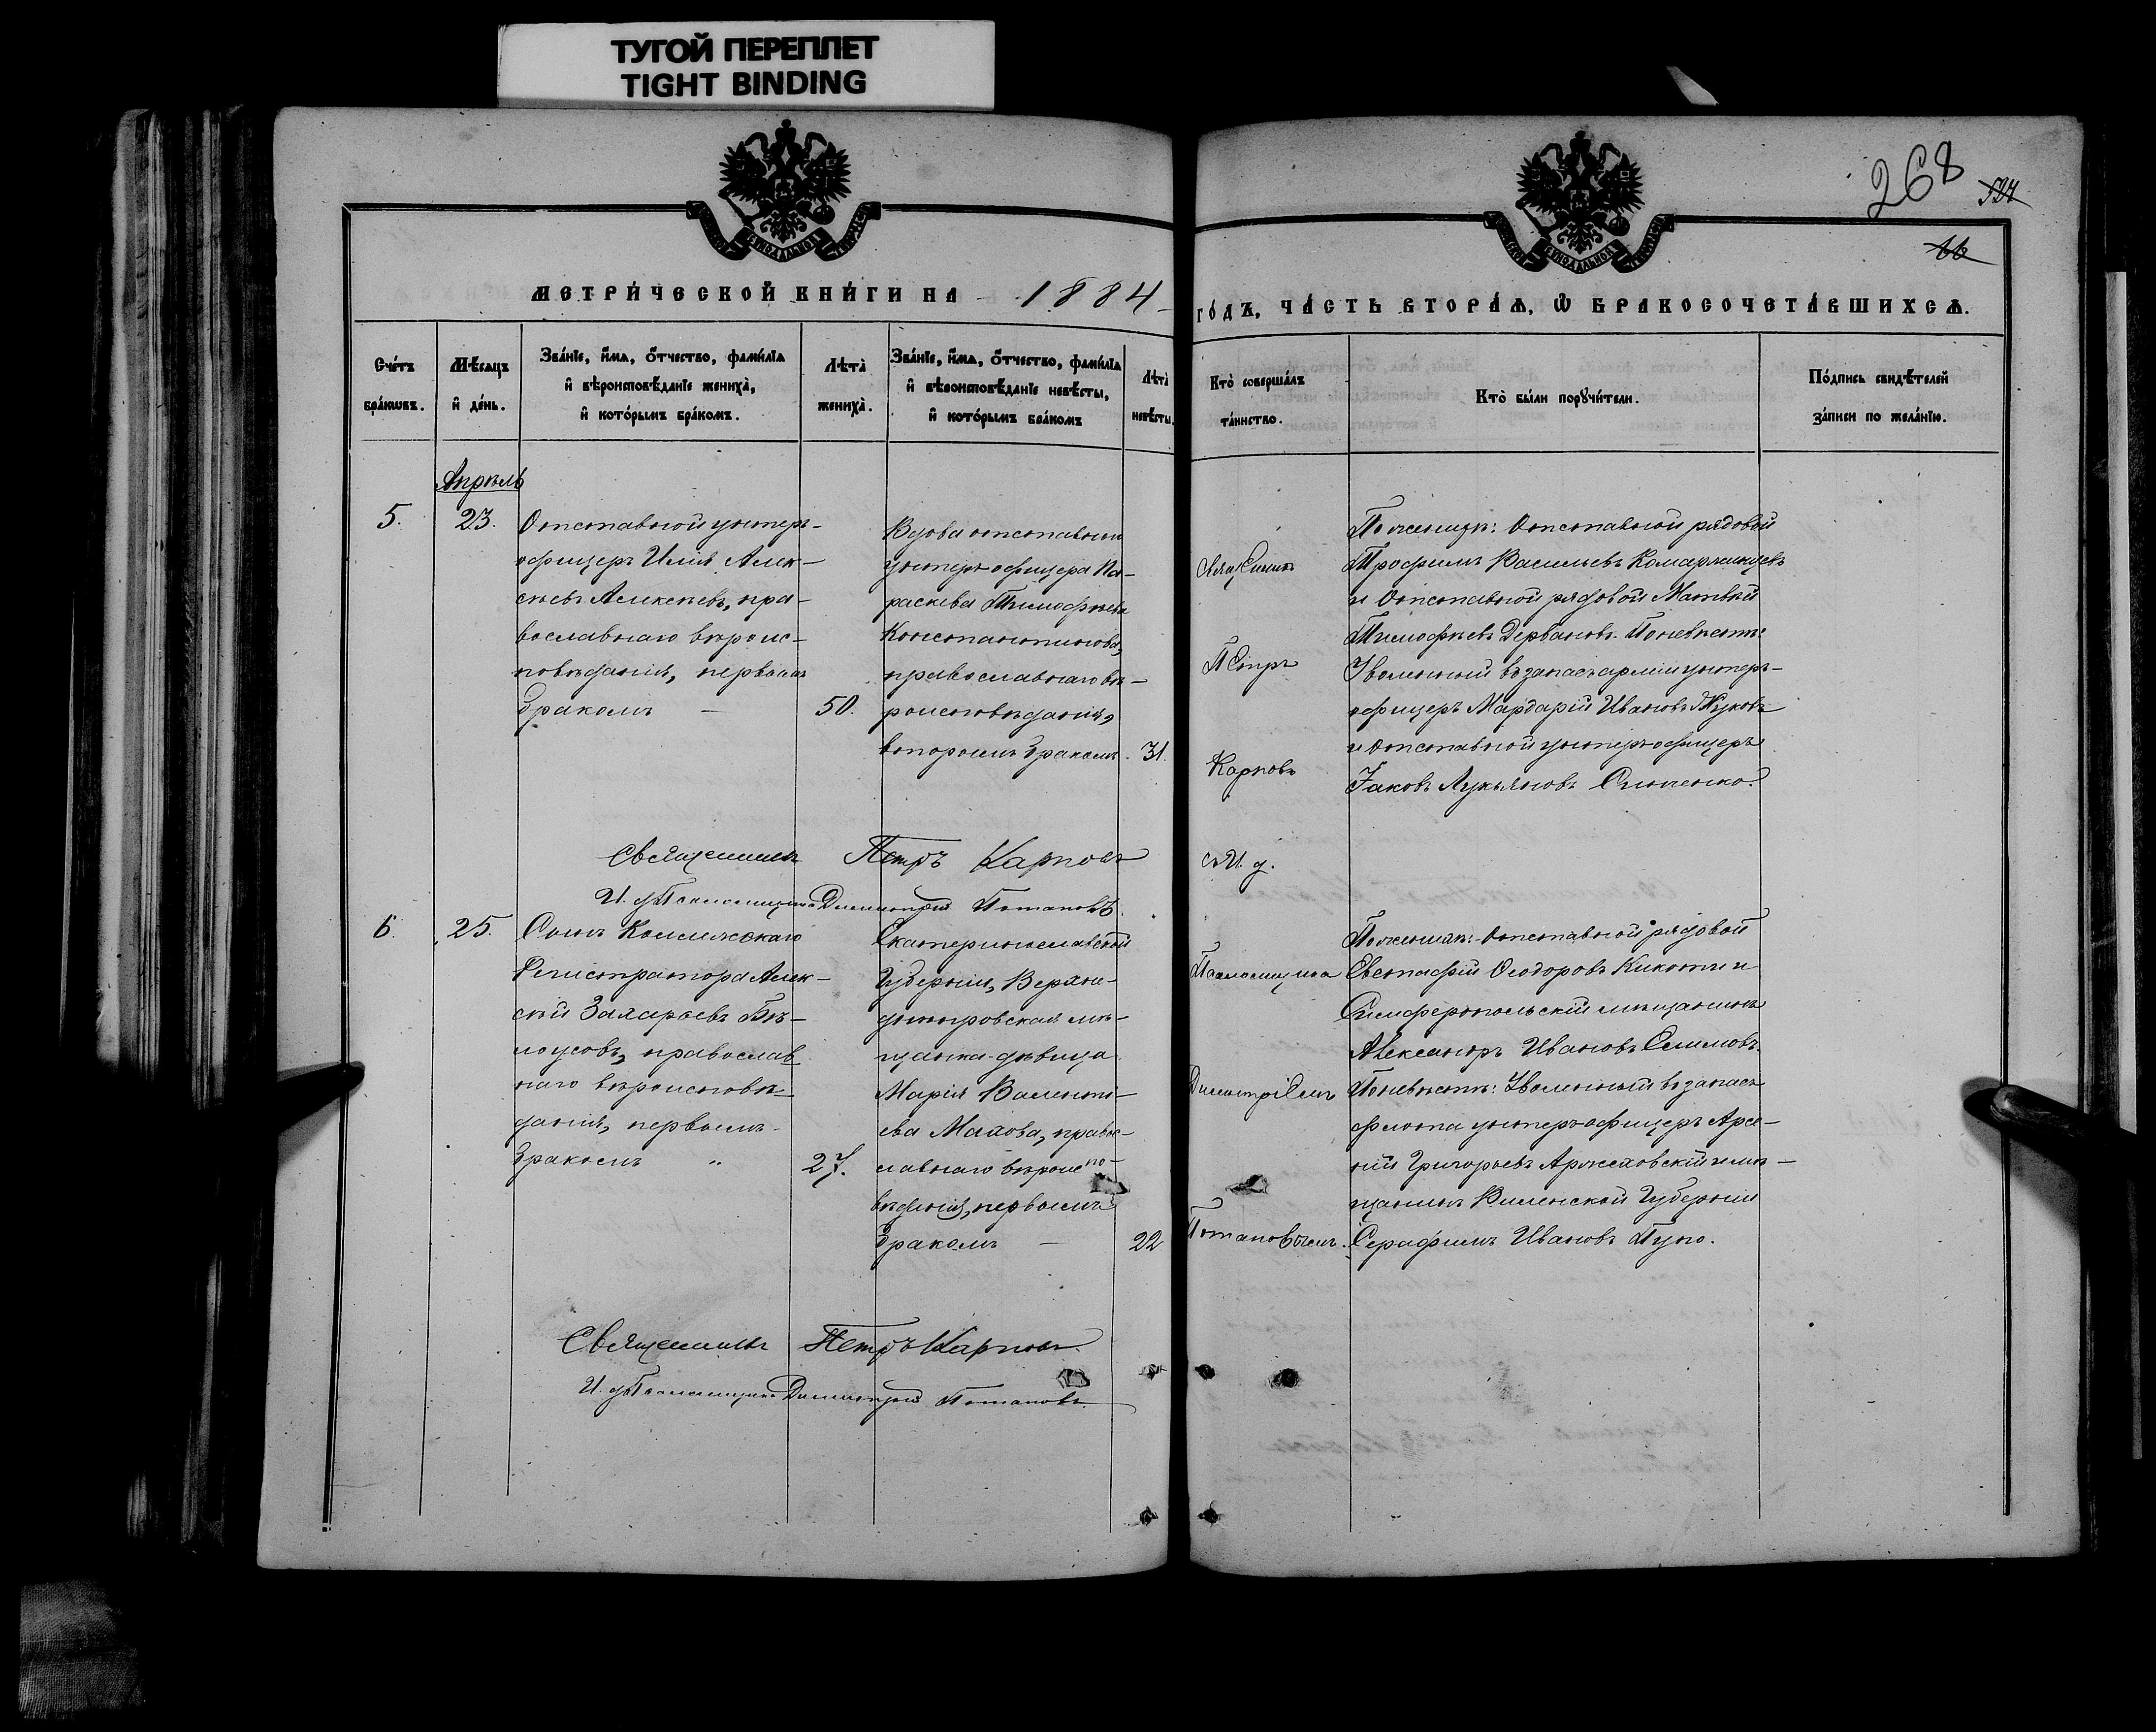 ТУГОЙ ПЕРЕПЛЕТ
TIGHT BINDING
268
527
16
МЕТРИ́ЧЕСКОЙ КНИ́ГИ НА 1884
ГО́ДЪ, ЧА́СТЬ ВТОРА́Ѧ, Ѿ БРАКОСОЧЕТА́ВШИХСѦ.
Сче́тъ
бра́кѡвъ.
Мѣ́сѧцъ
и҆ де́нь.
Зва́нїе, и҆́мѧ, ѻ҆́тчество, фами́лїѧ
и҆ вѣроисповѣ́данїе жениха̀,
и҆ кото́рымъ бра́комъ.
Лѣ́та
жениха̀.
Зва́нїе, и҆́мѧ, ѻ҆́тчество, фами́лїѧ
и҆ вѣроисповѣ́данїе невѣ́сты,
и҆ кото́рымъ бра́комъ
Лѣ́та
невѣ́сты.
Кто̀ соверша́лъ
та́инство.
Кто̀ бы́ли порꙋчи́тели.
По́дпись свидѣ́телей
за́писи по жела́нїю.
Апрѣль
5.
23.
Отставной унтеръ-
офицеръ Илія Алек-
сѣевъ Алексѣевъ, пра-
вославнаго вѣроис-
повѣданія, первымъ
бракомъ —
50.
Вдова отставнаго
унтеръ офицера Па-
раскева Тимофѣева
Константинова,
православнаго вѣ-
роисповѣданія,
вторымъ бракомъ.
31.
Священникъ
Петръ
Карповъ
съ И. д.
Поженихѣ: Отставной рядовой
Трофимъ Васильевъ
и Отставной рядовой Матвѣй
Тимофѣевъ Дербановъ. Поневѣстѣ:
Уволенный въ запасъ арміи унтеръ-
офицеръ Мардарій Ивановъ Жуковъ
и Отставной унтеръ офицеръ
Іаковъ Лукьяновъ
Священникъ Петръ Карповъ
И. д. Псаломщика Димитрій Потаповъ.
6.
25.
Сынъ Коллежскаго
Регистратора Алек-
сѣй Захарьевъ Бѣ-
лоусовъ, православ
наго вѣроисповѣ-
данія, первымъ-
бракомъ "
27.
Екатеринославской
Губерніи, Верхне-
днѣпровская мѣ-
щанка-дѣвица
Марія Валенті-
ева Махова, правос-
лавнаго вѣроиспо-
вѣданія, первымъ
бракомъ —
22
Псаломщика
Димитріемъ
Потаповымъ.
Поженихѣ: Отставной рядовой
Евстафій Ѳеодоровъ Кикоть и
Симферопольскій мѣщанинъ
Александръ Ивановъ Селимовъ.
Поневѣстѣ: Уволенный въ запасъ
флота унтеръ-офицеръ Арсе-
ній Григорьевъ Аржеховскій и мѣ-
щанинъ Виленской Губерніи
Серафимъ Ивановъ
Священникъ Петръ Карповъ
И. д. Псаломщика Димитрій Потаповъ.